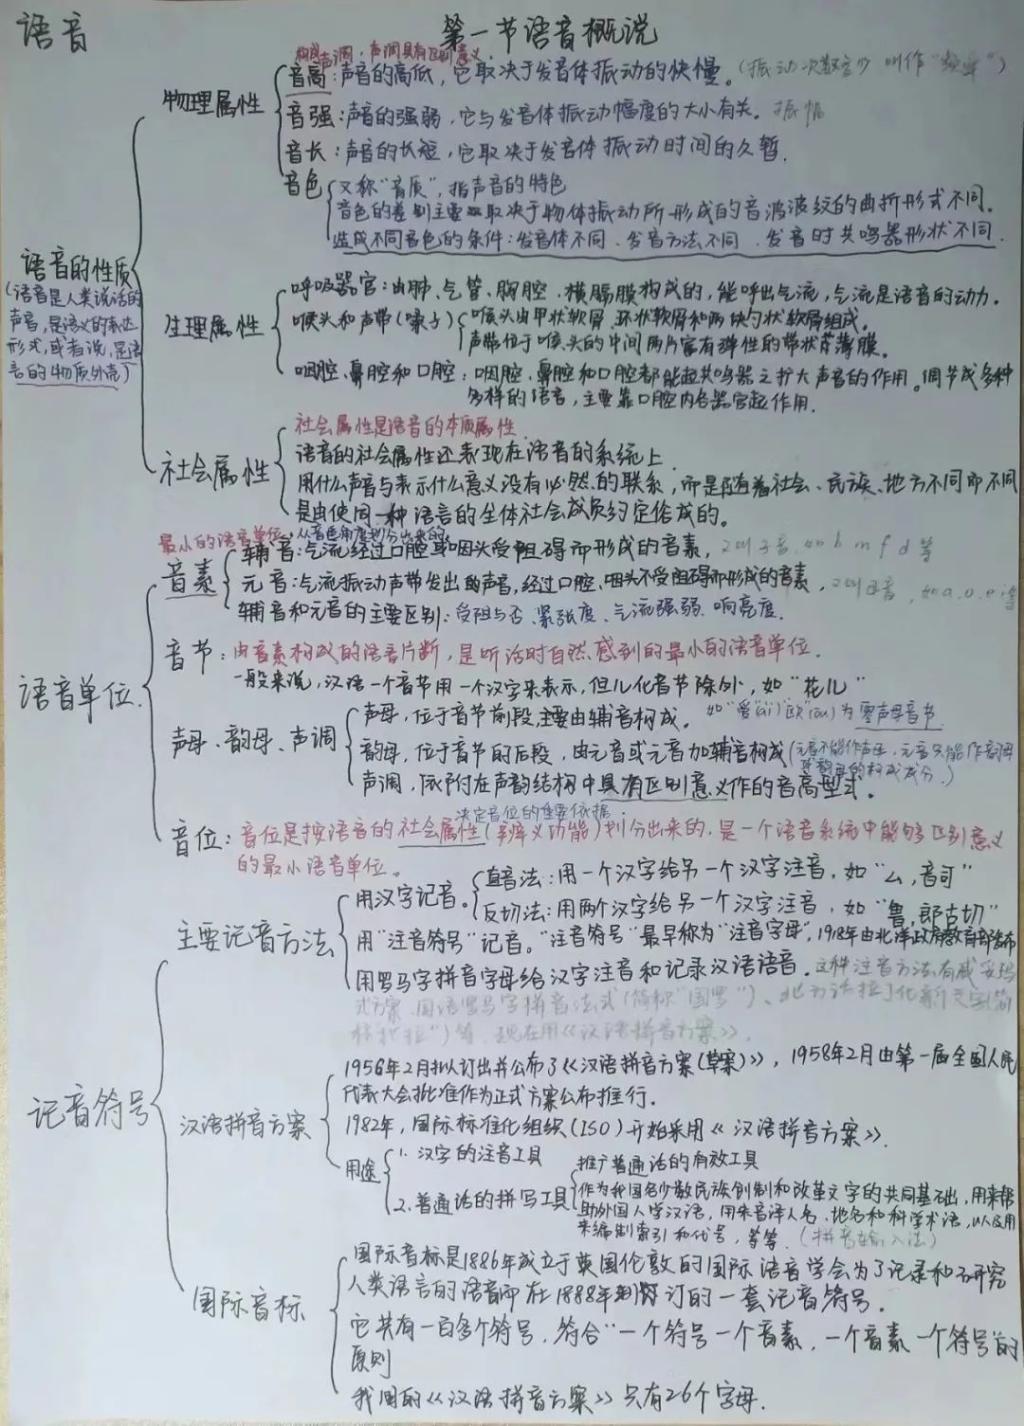 语音
第一节语音概说
构成声调，声调具有区别意义
物理属性
音高：声音的高低，它取决于发音体振动的快慢。（振动次数多少 叫作“频率”）
音强：声音的强弱，它与发音体振动幅度的大小有关。振幅
音长：声音的长短，它取决于发音体振动时间的久暂.
音色
又称“音质”，指声音的特色
音色的差别主要取决于物体振动所形成的音波波纹的曲折形式不同。
造成不同音色的条件：发音体不同、发音方法不同、发音时共鸣器形状不同.
语音的性质
（语音是人类说话的
声音，是语义的表达
形式，或者说，是语
言的物质外壳）
生理属性
呼吸器官：由肺、气管、胸腔、横膈膜构成的，能呼出气流，气流是语音的动力.
喉头和声带（嗓子）
喉头由甲状软骨、环状软骨和两块勺状软骨组成.
声带位于喉头的中间两片富有弹性的带状薄膜。
咽腔、鼻腔和口腔：咽腔、鼻腔和口腔都能起共鸣器之扩大声音的作用。调节成多种
多样的语音，主要靠口腔内各器官起作用.
社会属性
社会属性是语音的本质属性
语音的社会属性还表现在语音的系统上.
用什么声音与表示什么意义没有必然的联系，而是随着社会、民族、地方不同而不同
是由使同一种语言的全体社会成员约定俗成的。
最小的语音单位，从音色角度划分出来的
语音单位.
音素
辅音：气流经过口腔和咽头受阻碍而形成的音素，又叫子音.如b m f d等
元音：气流振动声带发出的声音，经过口腔、咽头不受阻碍而形成的音素，又叫母音，如a.o.e等
辅音和元音的主要区别：受阻与否、紧张度、气流强弱、响亮度.
音节：由音素构成的语音片断，是听话时自然感到的最小的语音单位.
一般来说，汉语一个音节用一个汉字来表示，但儿化音节除外，如“花儿”
声母、韵母、声调
声母，位于音节前段，主要由辅音构成。如“爱”(ai)“欧”(ou)为零声母音节
韵母，位于音节的后段，由元音或元音加辅音构成（元音不能作声母，元音只能作韵母
或韵母的构成成分.）
声调，依附在声韵结构中具有区别意义作的音高型式。
决定音位的重要依据
音位：音位是按语音的社会属性（辨义功能）划分出来的，是一个语音系统中能够区别意义
的最小语音单位。
记音符号
主要记音方法
用汉字记音。
直音法：用一个汉字给另一个汉字注音，如“厶，音司”
反切法：用两个汉字给另一个汉字注音，如“鲁，郎古切”
用“注音符号”记音。“注音符号”最早称为“注音字母”，1918年由北洋政府教育部公布
用罗马字拼音字母给汉字注音和记录汉语语音.这种注音方法有威妥玛
式方案、国语罗马字拼音法式（简称“国罗”）、北方话拉丁化新文字（简
称“北拉”）等，现在用《汉语拼音方案》.
汉语拼音方案
1956年2月拟订出并公布了《汉语拼音方案（草案）》，1958年2月由第一届全国人民
代表大会批准作为正式方案公布推行.
1982年，国际标准化组织（ISO）开始采用《汉语拼音方案》.
用途
1.汉字的注音工具
2.普通话的拼写工具
推广普通话的有效工具
作为我国各少数民族创制和改革文字的共同基础，用来帮
助外国人学汉语，用来音译人名、地名和科学术语，以及用
来编制索引和代号，等等.（拼音输入法）
国际音标
国际音标是1886年成立于英国伦敦的国际语音学会为了记录和研究
人类语言的语音而在1888年制订的一套记音符号.
它共有一百多个符号，符合“一个符号一个音素，一个音素一个符号”的
原则
我国的《汉语拼音方案》只有26个字母.